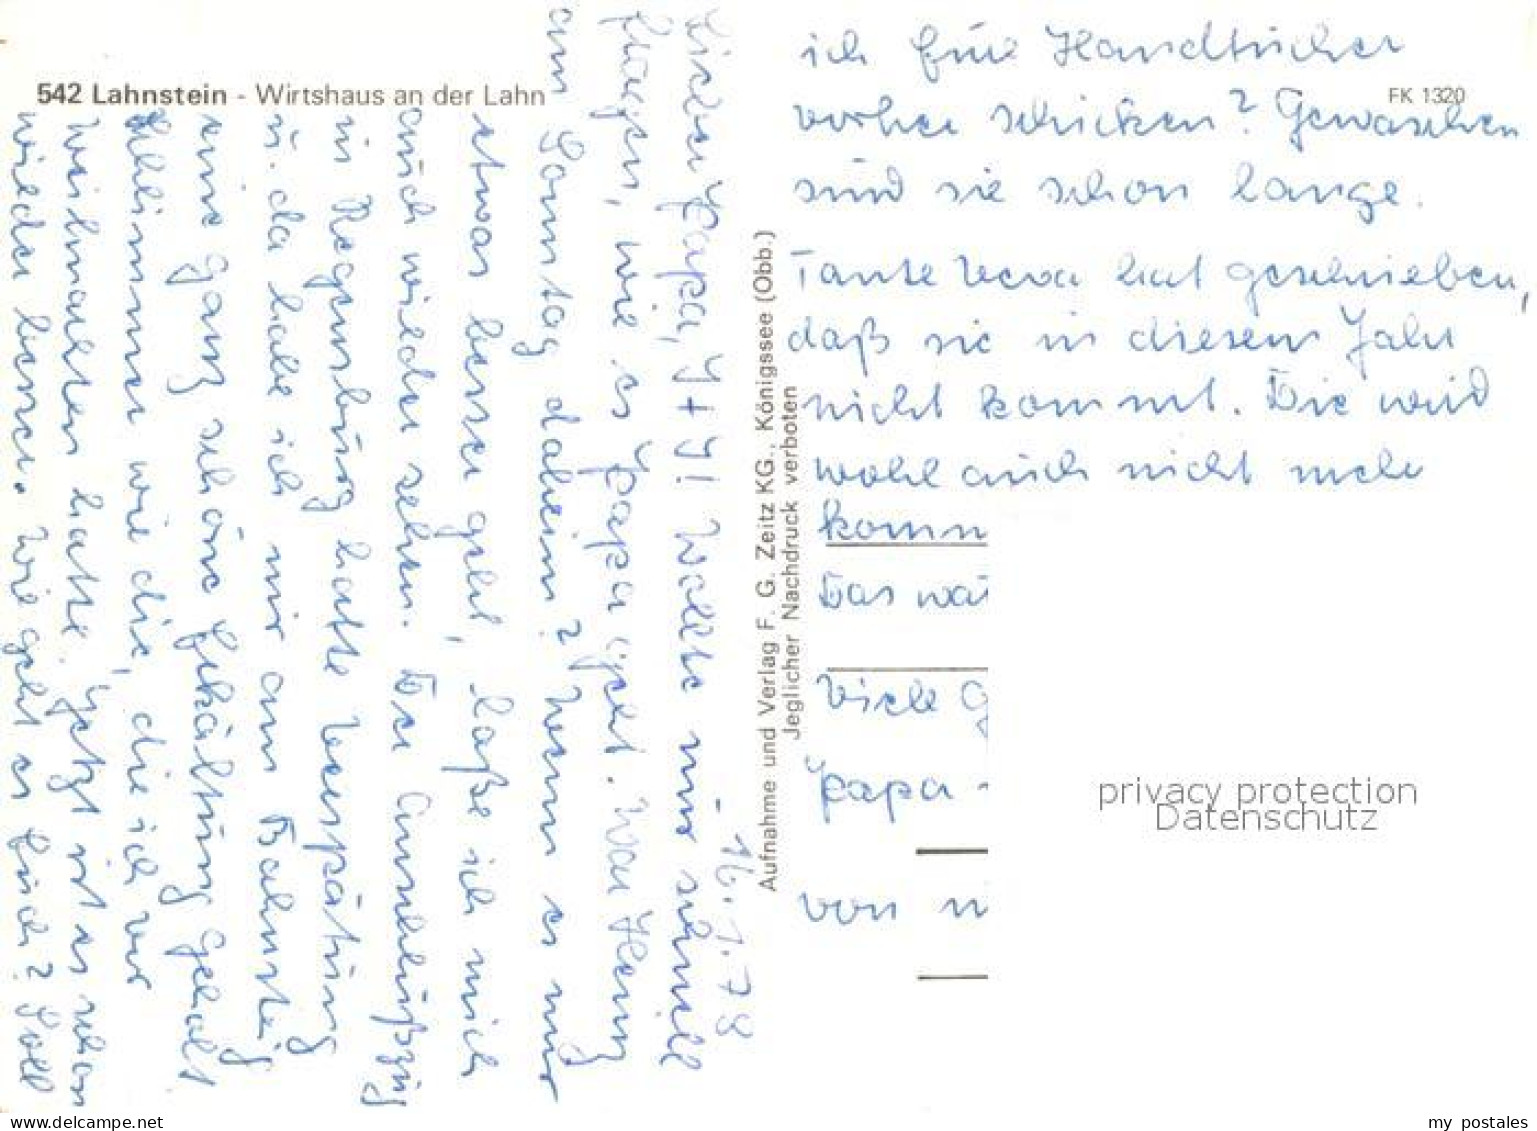 542 Lahnstein - Wirtshaus an der Lahn
FK 1320
16.1.78
Lieber Papa, Wollte nur schnell
fragen, wie es Papa geht. War
am Sonntag daheim? Wenn es nur
etwas besser geht, laße ich mich
auch wieder sehen. Der Anschlußzug
in Regensburg hatte Verspätung
u. da habe ich mir am Bahnsteig
eine ganz schöne Erkältung geholt
schlimmer wie die, die ich vor
Weihnachten hatte. Jetzt ist es schon
wieder besser. Wie geht es Euch? Soll
ich Eure Handtücher
vorher schicken? Gewaschen
sind sie schon lange.
Tante hat geschrieben,
daß sie in diesem Jahr
nicht kommt. Die wird
wohl auch nicht mehr
komm
Das wä
Viele G
Papa -
von
Aufnahme und Verlag F. G. Zeitz KG., Königssee (Obb.)
Jeglicher Nachdruck verboten
privacy protection
Datenschutz
www.delcampe.net
my_postales